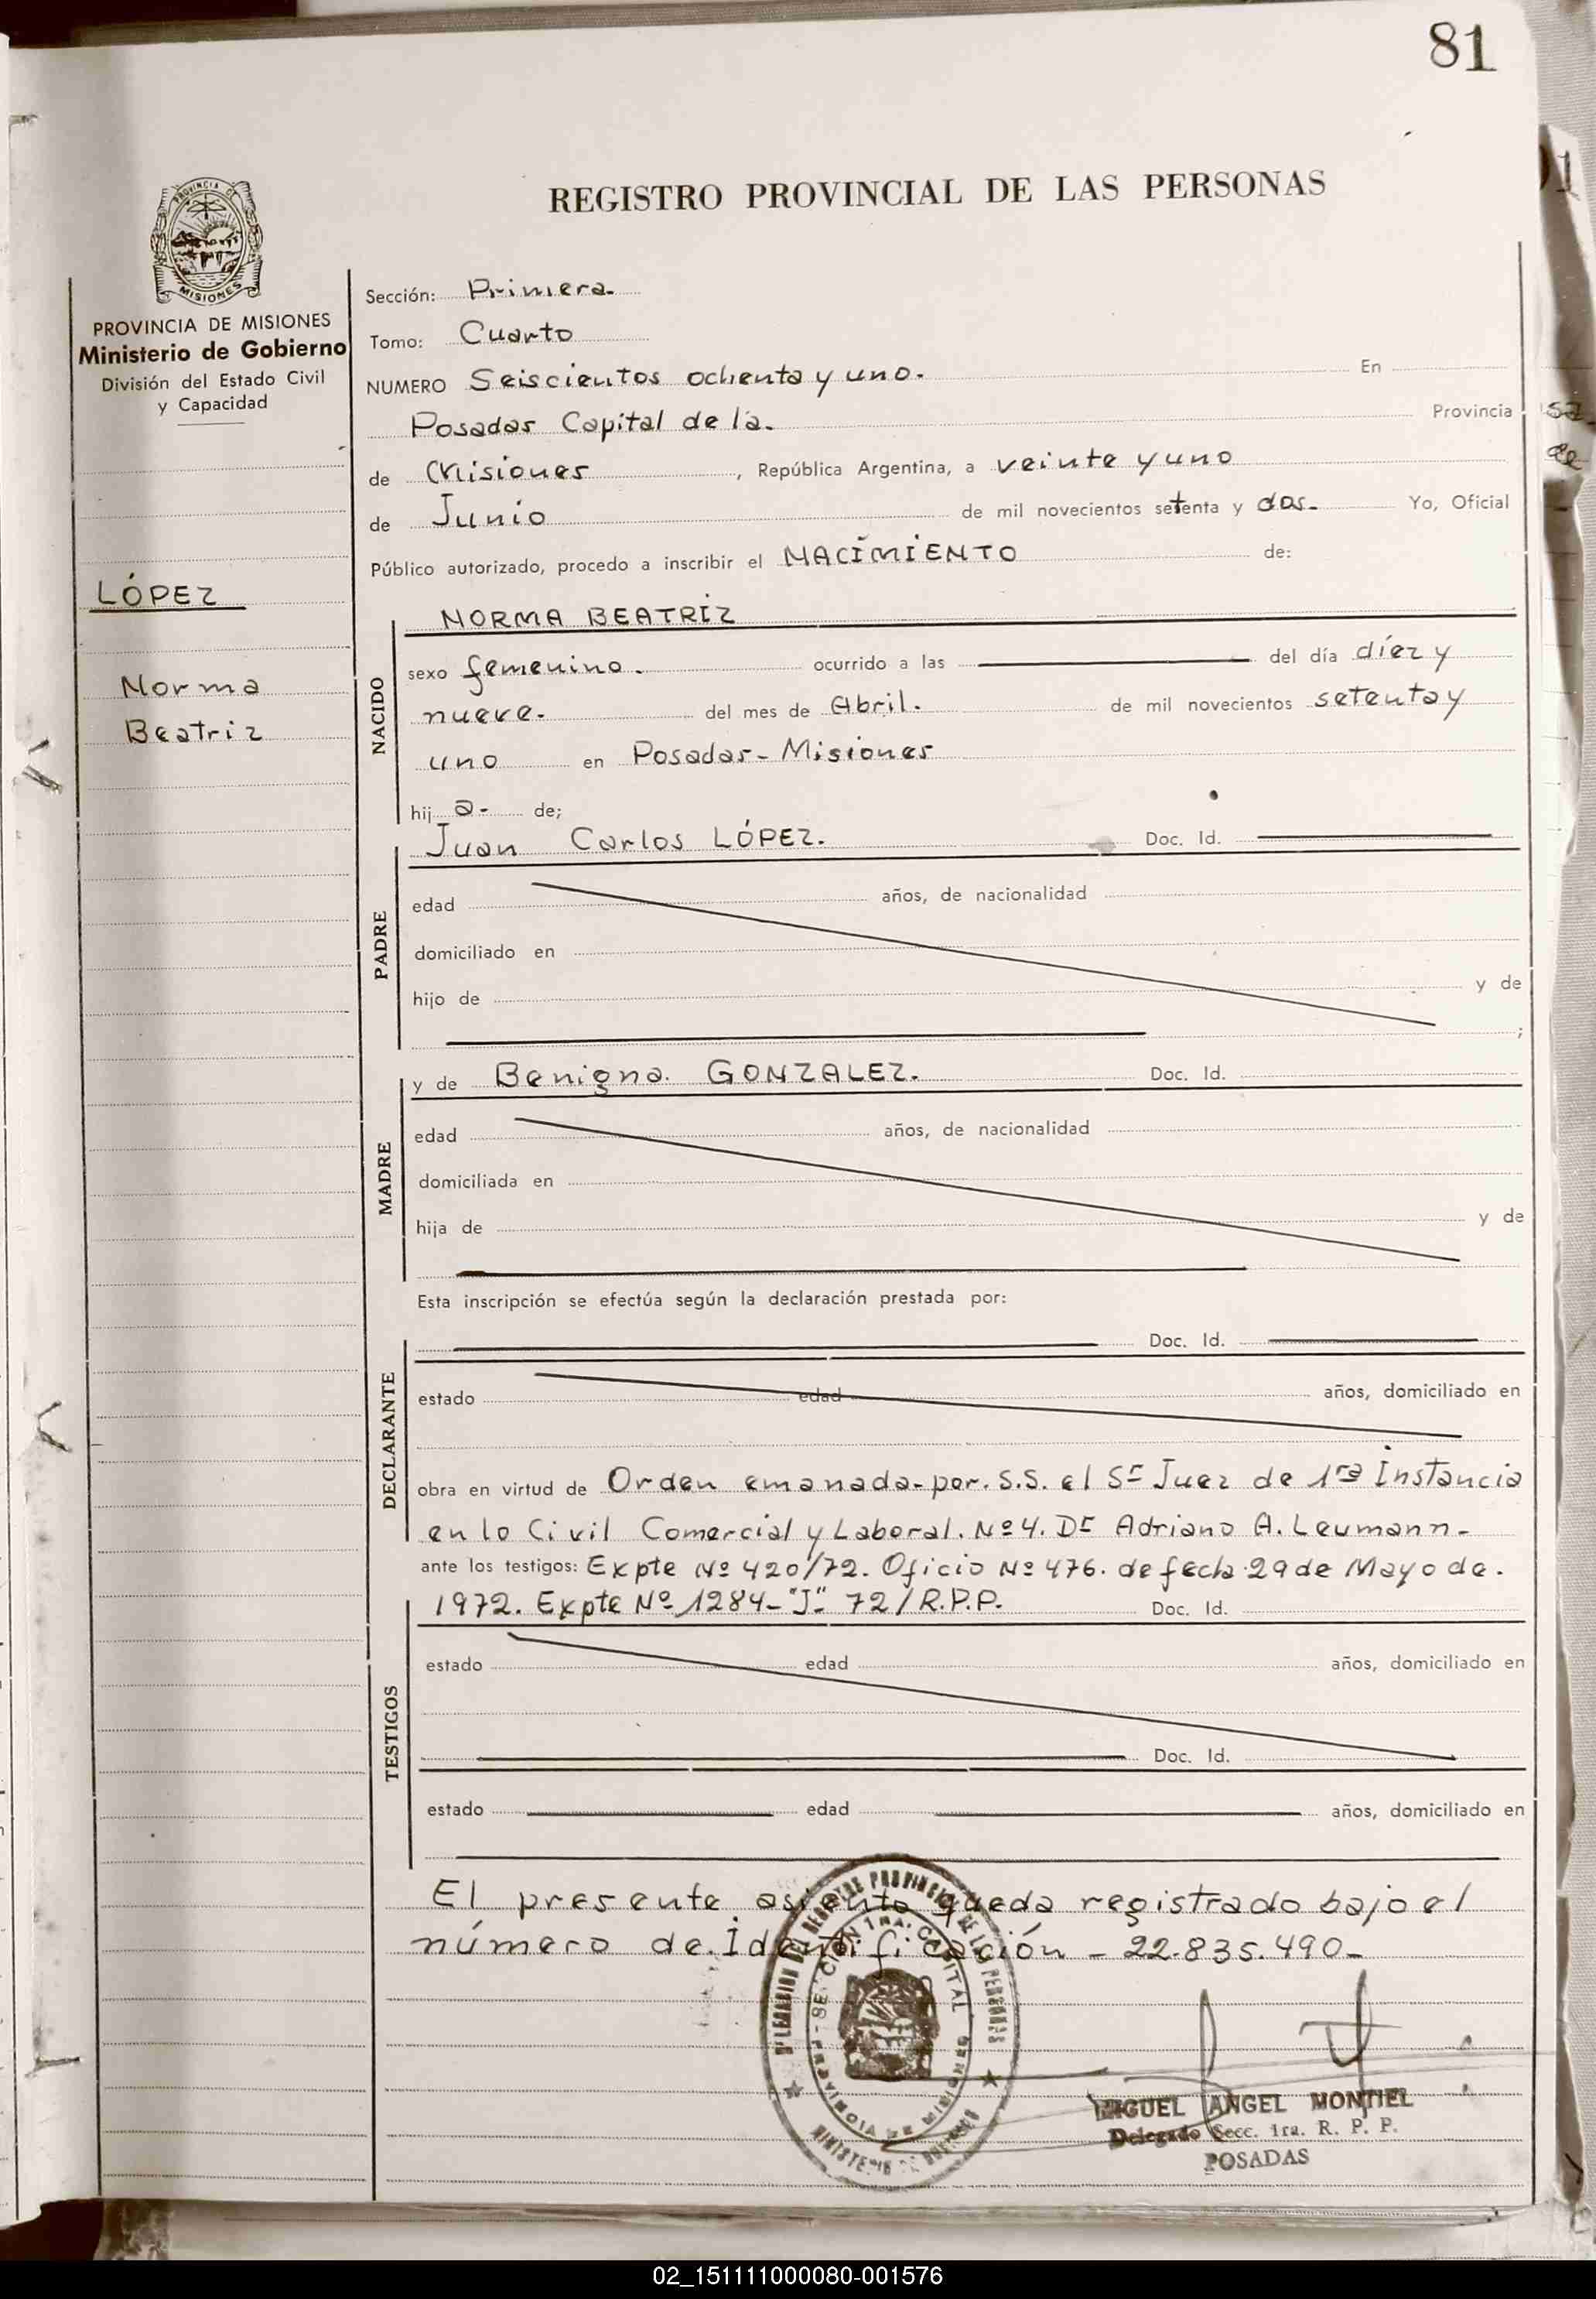 81
REGISTRO PROVINCIAL DE LAS PERSONAS
PROVINCIA DE MISIONES
Ministerio de Gobierno
División del Estado Civil
y Capacidad
LÓPEZ
Norma
Beatriz
Sección: Primera.
Tomo: Cuarto
NUMERO Seiscientos ochenta y uno. En
Posadas Capital de la. Provincia
de Misiones, República Argentina, a veinte y uno
de Junio de mil novecientos setenta y dos. Yo, Oficial
Público autorizado, procedo a inscribir el NACIMIENTO de:
NORMA BEATRIZ
NACIDO
sexo femenino. ocurrido a las del día diez y
nueve. del mes de Abril. de mil novecientos setenta y
uno en Posadas - Misiones
hija- de;
Juan Carlos LÓPEZ. Doc. Id.
PADRE
edad años, de nacionalidad
domiciliado en
hijo de y de
;
y de Benigna. GONZALEZ. Doc. Id.
MADRE
edad años, de nacionalidad
domiciliada en
hija de y de
Esta inscripción se efectúa según la declaración prestada por:
Doc. Id.
DECLARANTE
estado edad años, domiciliado en
obra en virtud de Orden emanada-por. S.S. el Sr Juez de 1ra Instancia
en lo Civil Comercial y Laboral. Nº 4. Dr Adriano A. Leumann-
ante los testigos: Expte Nº 420/72. Oficio Nº 476. de fecha 29 de Mayo de.
1972. Expte Nº 1284-"J"- 72/R.P.P. Doc. Id.
TESTIGOS
estado edad años, domiciliado en
Doc. Id.
estado edad años, domiciliado en
El presente asiento queda registrado bajo el
número de. identificación - 22.835.490-
DELEGACION DEL REGISTRO PROVINCIAL DE LAS PERSONAS
SECCION 1RA. CAPITAL
PROVINCIA DE MISIONES
MINISTERIO DE GOBIERNO
MIGUEL ANGEL MONTIEL
Delegado Secc. 1ra. R. P. P.
POSADAS
02_151111000080-001576